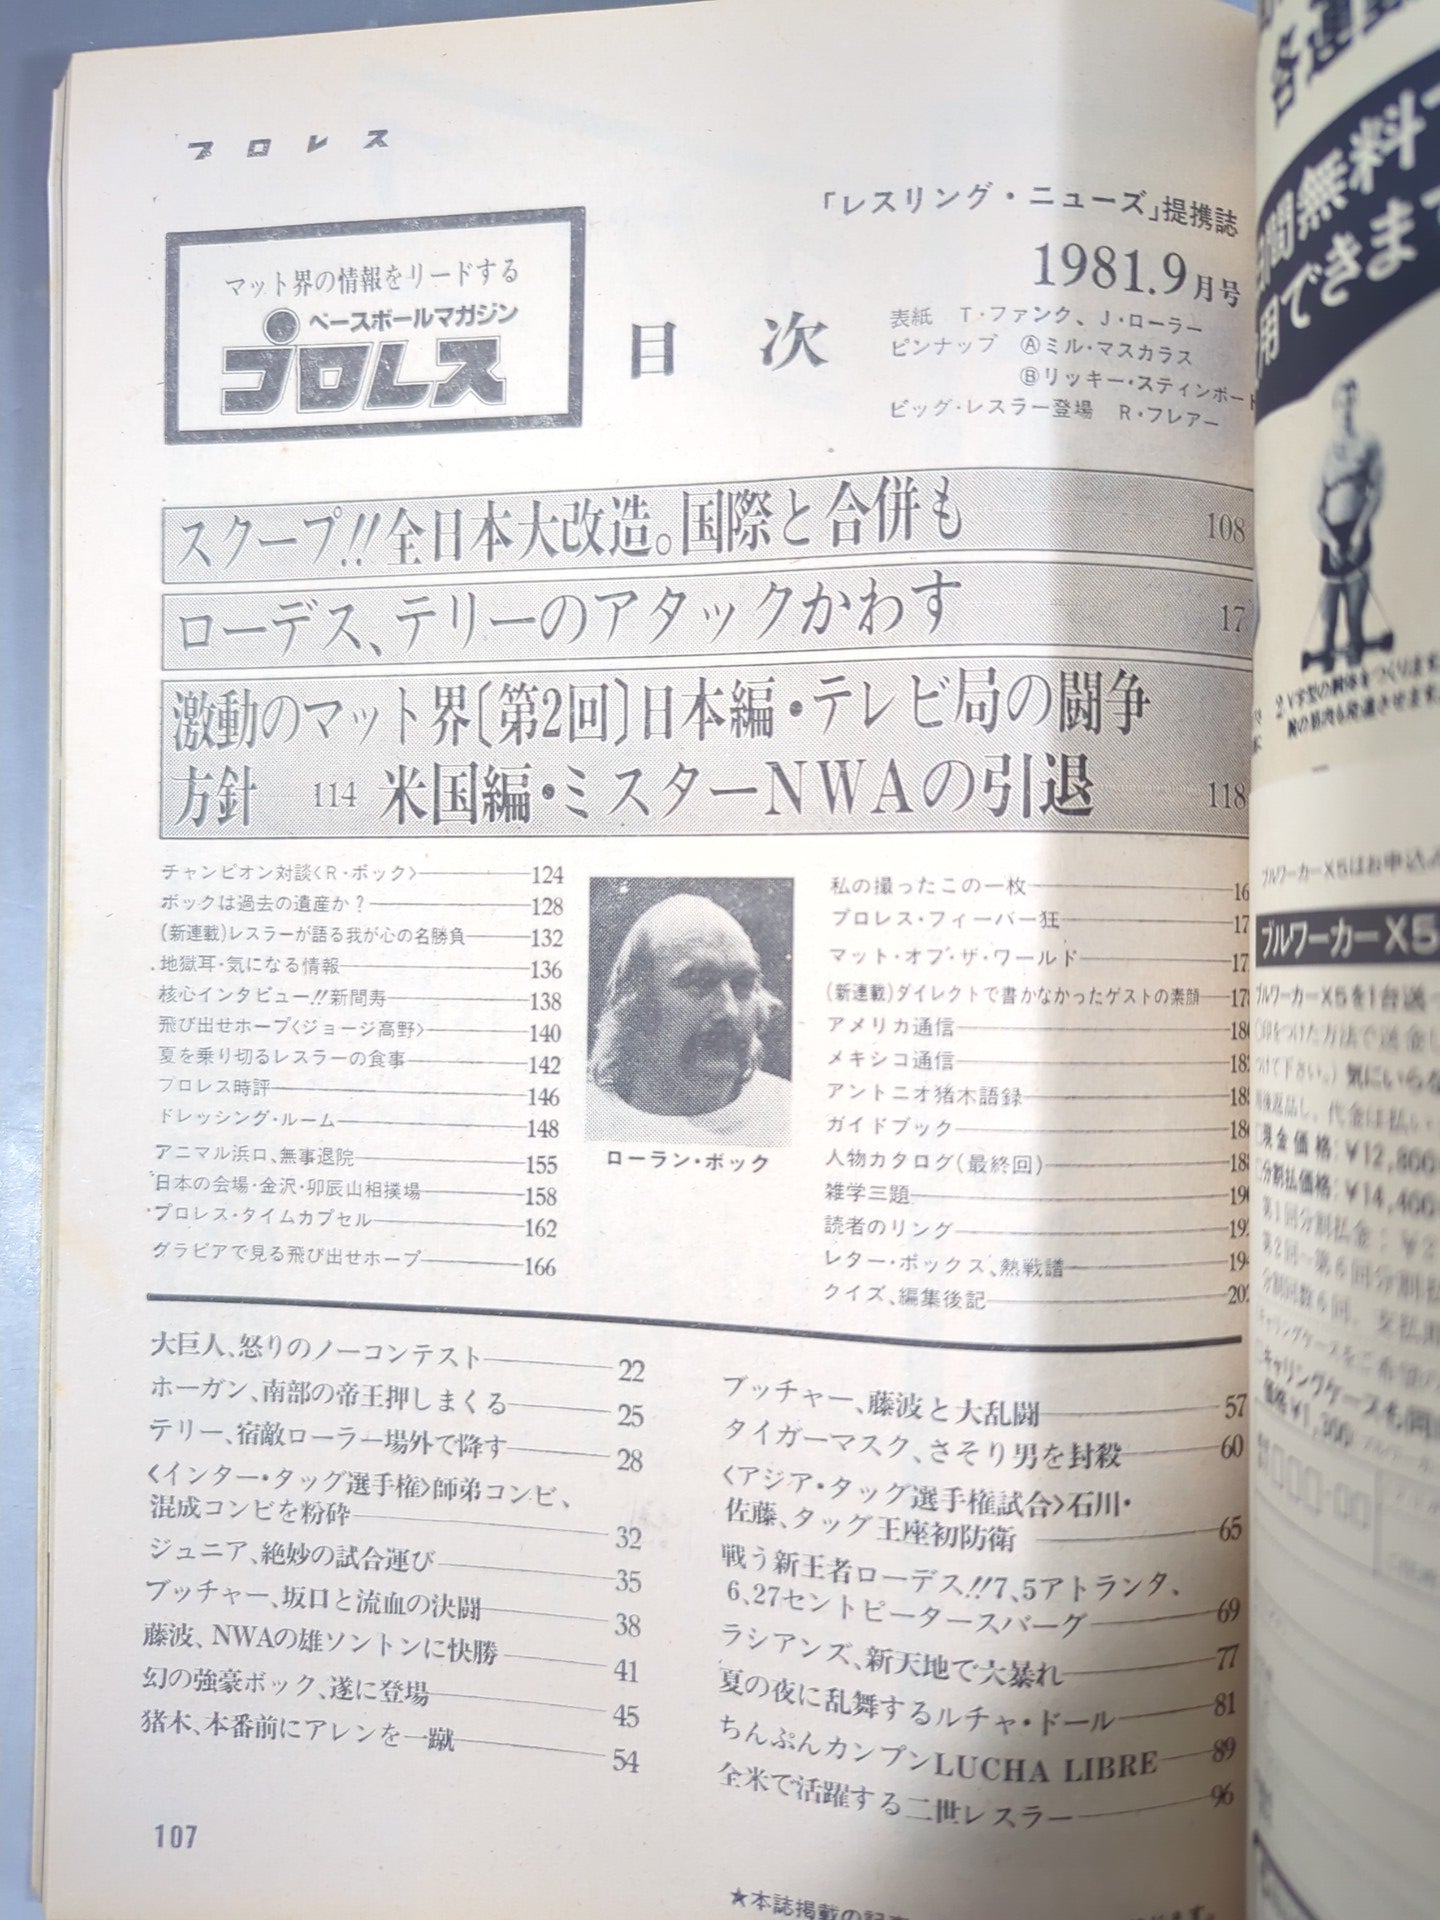 プロレス
「レスリング・ニューズ」提携誌
1981.9月号
マット界の情報をリードする
ベースボールマガジン
プロレス
目次
表紙 T・ファンク、J・ローラー
ピンナップ Ⓐミル・マスカラス
Ⓑリッキー・スティンボート
ビッグ・レスラー登場 R・フレアー
スクープ!!全日本大改造。国際と合併も 108
ローデス、テリーのアタックかわす 17
激動のマット界〔第2回〕日本編・テレビ局の闘争
方針 114 米国編・ミスターNWAの引退 118
チャンピオン対談〈R・ボック〉 124
ボックは過去の遺産か? 128
(新連載)レスラーが語る我が心の名勝負 132
地獄耳・気になる情報 136
核心インタビュー!!新間寿 138
飛び出せホープ〈ジョージ高野〉 140
夏を乗り切るレスラーの食事 142
プロレス時評 146
ドレッシング・ルーム 148
アニマル浜口、無事退院 155
日本の会場・金沢・卯辰山相撲場 158
プロレス・タイムカプセル 162
グラビアで見る飛び出せホープ 166
ローラン・ボック
私の撮ったこの一枚
プロレス・フィーバー狂
マット・オブ・ザ・ワールド
(新連載)ダイレクトで書かなかったゲストの素顔
アメリカ通信
メキシコ通信
アントニオ猪木語録
ガイドブック
人物カタログ(最終回)
雑学三題
読者のリング
レター・ボックス、熱戦譜
クイズ、編集後記
大巨人、怒りのノーコンテスト 22
ホーガン、南部の帝王押しまくる 25
テリー、宿敵ローラー場外で降す 28
〈インター・タッグ選手権〉師弟コンビ、
混成コンビを粉砕 32
ジュニア、絶妙の試合運び 35
ブッチャー、坂口と流血の決闘 38
藤波、NWAの雄ソントンに快勝 41
幻の強豪ボック、遂に登場 45
猪木、本番前にアレンを一蹴 54
ブッチャー、藤波と大乱闘 57
タイガーマスク、さそり男を封殺 60
〈アジア・タッグ選手権試合〉石川・
佐藤、タッグ王座初防衛 65
戦う新王者ローデス!!7、5アトランタ、
6、27セントピータースバーグ 69
ラシアンズ、新天地で大暴れ 77
夏の夜に乱舞するルチャ・ドール 81
ちんぷんカンプンLUCHA LIBRE 89
全米で活躍する二世レスラー 96
107
★本誌掲載の記
各運動
間無料
用できます
ブルワーカーX5はお申込
ブルワーカーX5
ブルワーカーX5を1台送
気にいらな
代金は払い
現金価格:¥12,800
分割払価格:¥14,400
キャリングケースも同
価格¥1,300